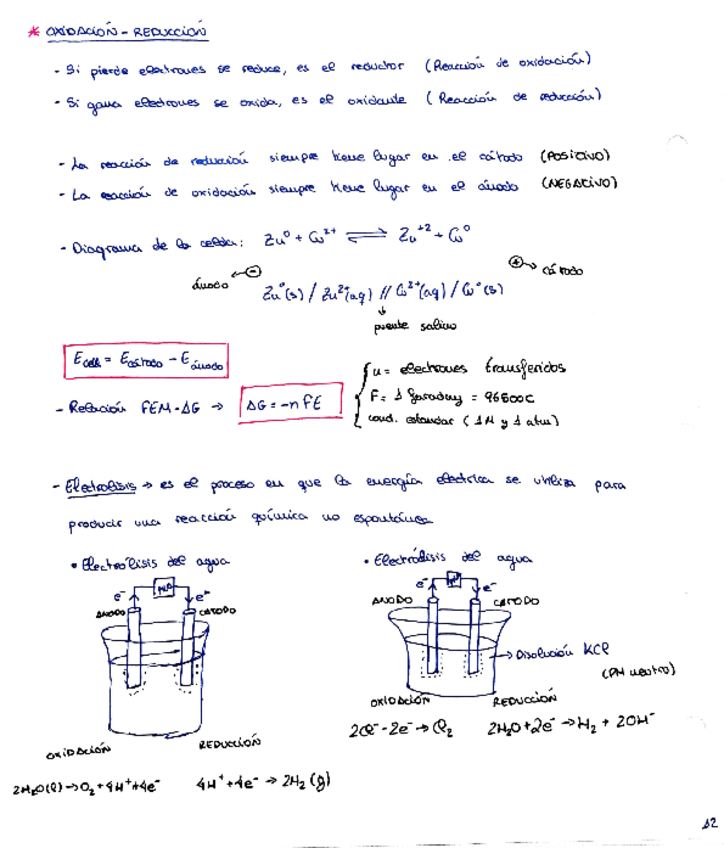 * OXIDACIÓN - REDUCCIÓN
- Si pierde electrones se reduce, es el reductor (Reacción de oxidación)
- Si gana electrones se oxida, es el oxidante (Reacción de reducción)
- La reacción de reducción siempre tiene lugar en el cátodo (POSITIVO)
- La reacción de oxidación siempre tiene lugar en el ánodo (NEGATIVO)
- Diagrama de la celda: Zn⁰ + Cu²⁺ ⇌ Zn⁺² + Cu⁰
ánodo ← ⊖ ⊕ → cátodo
Zn⁰(s) / Zn²⁺(aq) // Cu²⁺(aq) / Cu⁰(s)
↓
puente salino
E celda = E cátodo - E ánodo
- Relación FEM-ΔG → ΔG = -nFE
n = electrones transferidos
F = 1 faraday = 96500C
cond. estandar (1M y 1 atm)
- Electrolisis → es el proceso en que la energía eléctrica se utiliza para
producir una reacción química no espontánea
• Electrólisis del agua
e⁻ e⁻
ÁNODO CÁTODO
OXIDACIÓN REDUCCIÓN
2H₂O(l) → O₂ + 4H⁺ + 4e⁻ 4H⁺ + 4e⁻ → 2H₂(g)
• Electrólisis del agua
e⁻ e⁻
ÁNODO CÁTODO
→ Disolución KCl
(PH neutro)
OXIDACIÓN REDUCCIÓN
2Cl⁻ - 2e⁻ → Cl₂ 2H₂O + 2e⁻ → H₂ + 2OH⁻
12